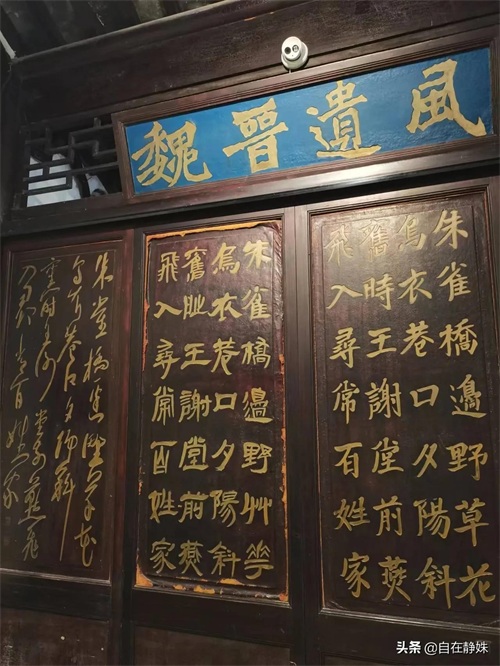 魏晉遺風
朱雀橋邊野草花
烏衣巷口夕陽斜
舊時王謝堂前燕
飛入尋常百姓家
朱雀橋邊野艸華
烏衣巷口夕陽斜
舊旹王謝堂前燕
飛入尋常百姓家
朱雀橋邊野草花
烏衣巷口夕陽斜
舊時王謝堂前燕飛
入尋常百姓家
头条 @自在静姝